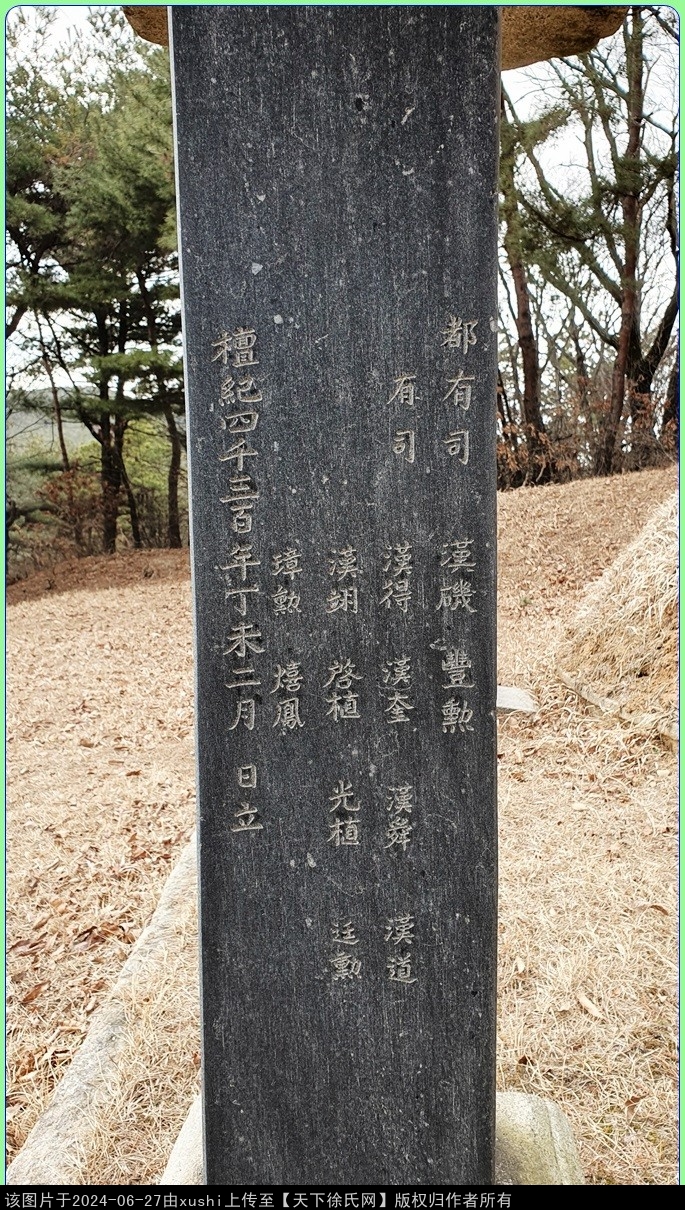 都有司 漢磯 豐勲
有司 漢得 漢奎 漢舜 漢道
漢翊 啓植 光植 廷勲
璋勲 熺鳳
檀紀四千三百年丁未二月 日立
该图片于2024-06-27由xushi上传至【天下徐氏网】版权归作者所有